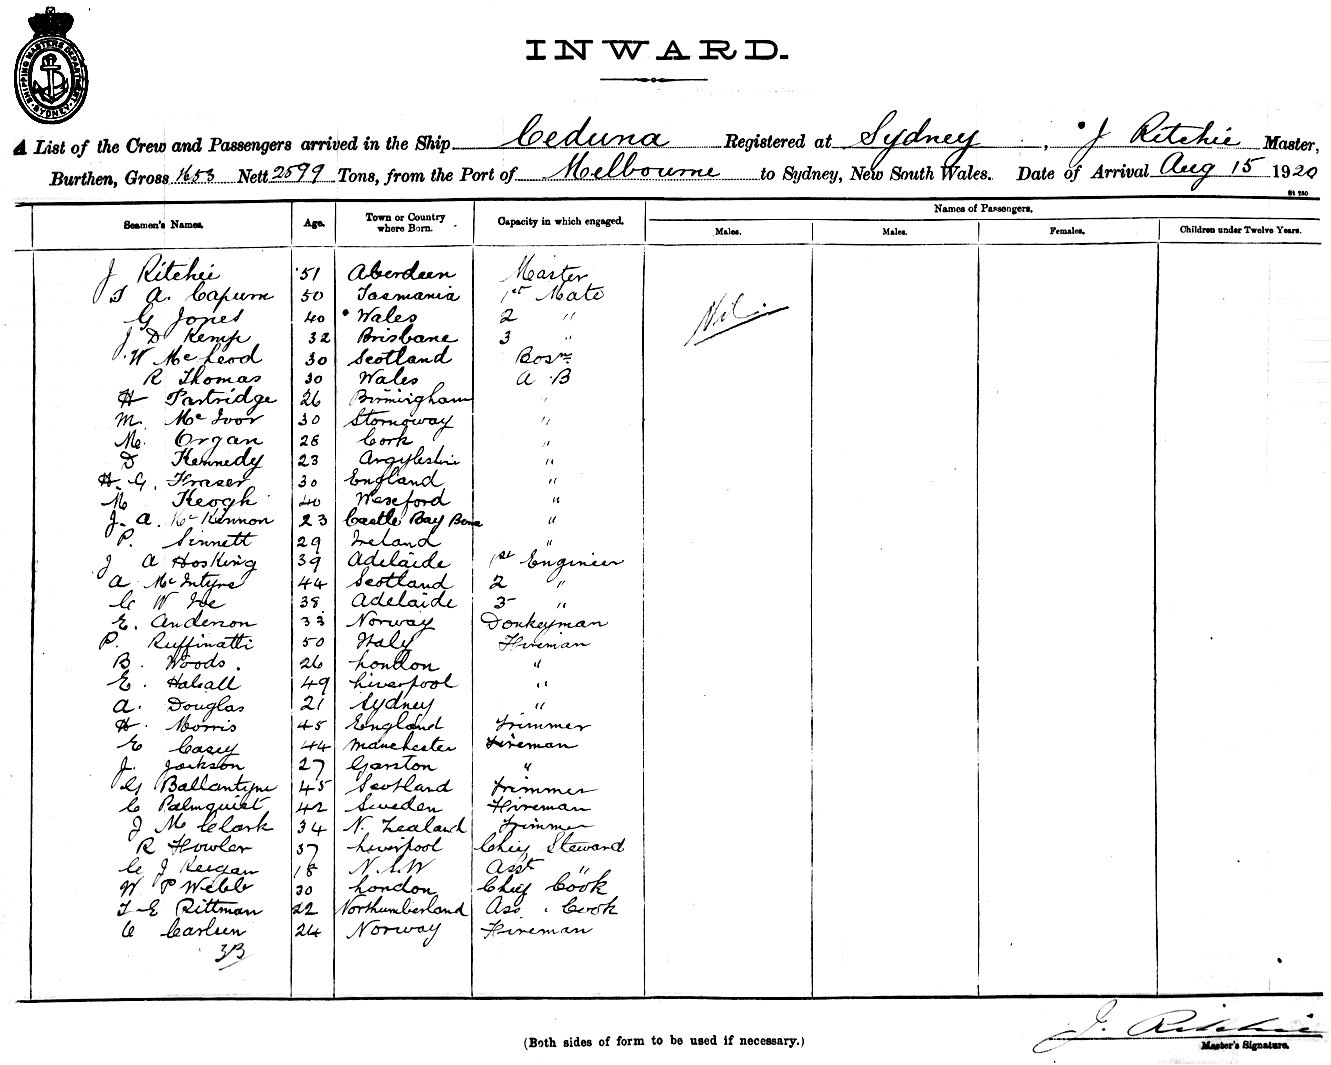 SHIPPING MASTERS DEPARTMENT SYDNEY
INWARD.
A List of the Crew and Passengers arrived in the Ship Ceduna Registered at Sydney, J Ritchie Master,
Burthen, Gross 1653 Nett 2599 Tons, from the Port of Melbourne to Sydney, New South Wales. Date of Arrival Aug 15 1920
Seamen's Names. Age. Town or Country where Born. Capacity in which engaged. Names of Passengers.
Males. Males. Females. Children under Twelve Years.
J Ritchie 51 Aberdeen Master
T A. Capurn 50 Tasmania 1st Mate
G Jones 40 Wales 2 " Nil
J D Kemp 32 Brisbane 3 "
W McLeod 30 Scotland Bosn
R Thomas 30 Wales A B
H Partridge 26 Birmingham "
M. McIvor 30 Stornoway "
M. Organ 28 Cork "
D Kennedy 23 Argyleshire "
H. G. Fraser 30 England "
M Keogh 40 Wexford "
J. A. McKinnon 23 Castle Bay "
P. Sinnett 29 Ireland "
J A Hosking 39 Adelaide 1st Engineer
A McIntyre 44 Scotland 2 "
C W 38 Adelaide 3 "
E. Anderson 33 Norway Donkeyman
P. Ruffinatti 50 Italy Fireman
B. Woods. 26 London "
E. Halsall 49 Liverpool "
A. Douglas 21 Sydney "
H. Morris 45 England Trimmer
E Casey 44 Manchester Fireman
J. Jackson 27 Garston "
G Ballantyne 45 Scotland Trimmer
C Palmquist 42 Sweden Fireman
J M Clark 34 N. Zealand Trimmer
R Fowler 37 Liverpool Chief Steward
C J Keegan 18 N.S.W Asst "
W P Webb 30 London Chief Cook
T E Rittman 22 Northumberland Ass. Cook
C Carlsen 24 Norway Fireman
33
J. Ritchie
(Both sides of form to be used if necessary.) Master's Signature.